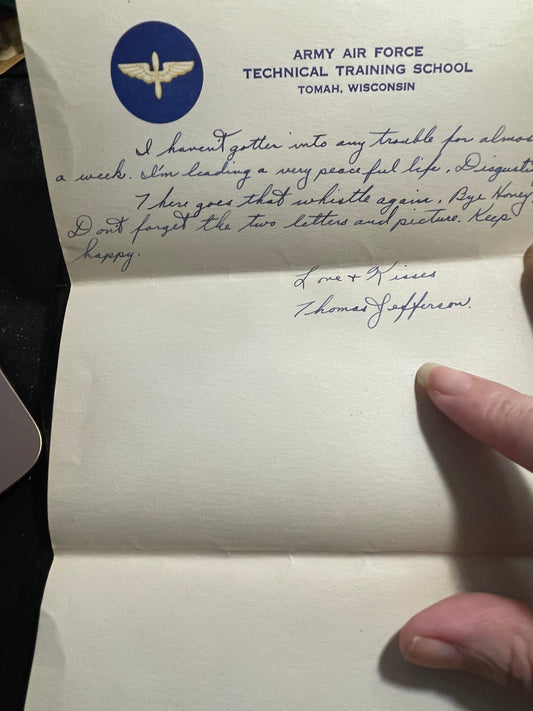 ARMY AIR FORCE
TECHNICAL TRAINING SCHOOL
TOMAH, WISCONSIN
I haven't gotten into any trouble for almos
a week. I'm leading a very peaceful life. Disgusti
There goes that whistle again. Bye Honey.
Dont forget the two letters and picture. Keep
happy.
Love & Kisses
Thomas Jefferson.